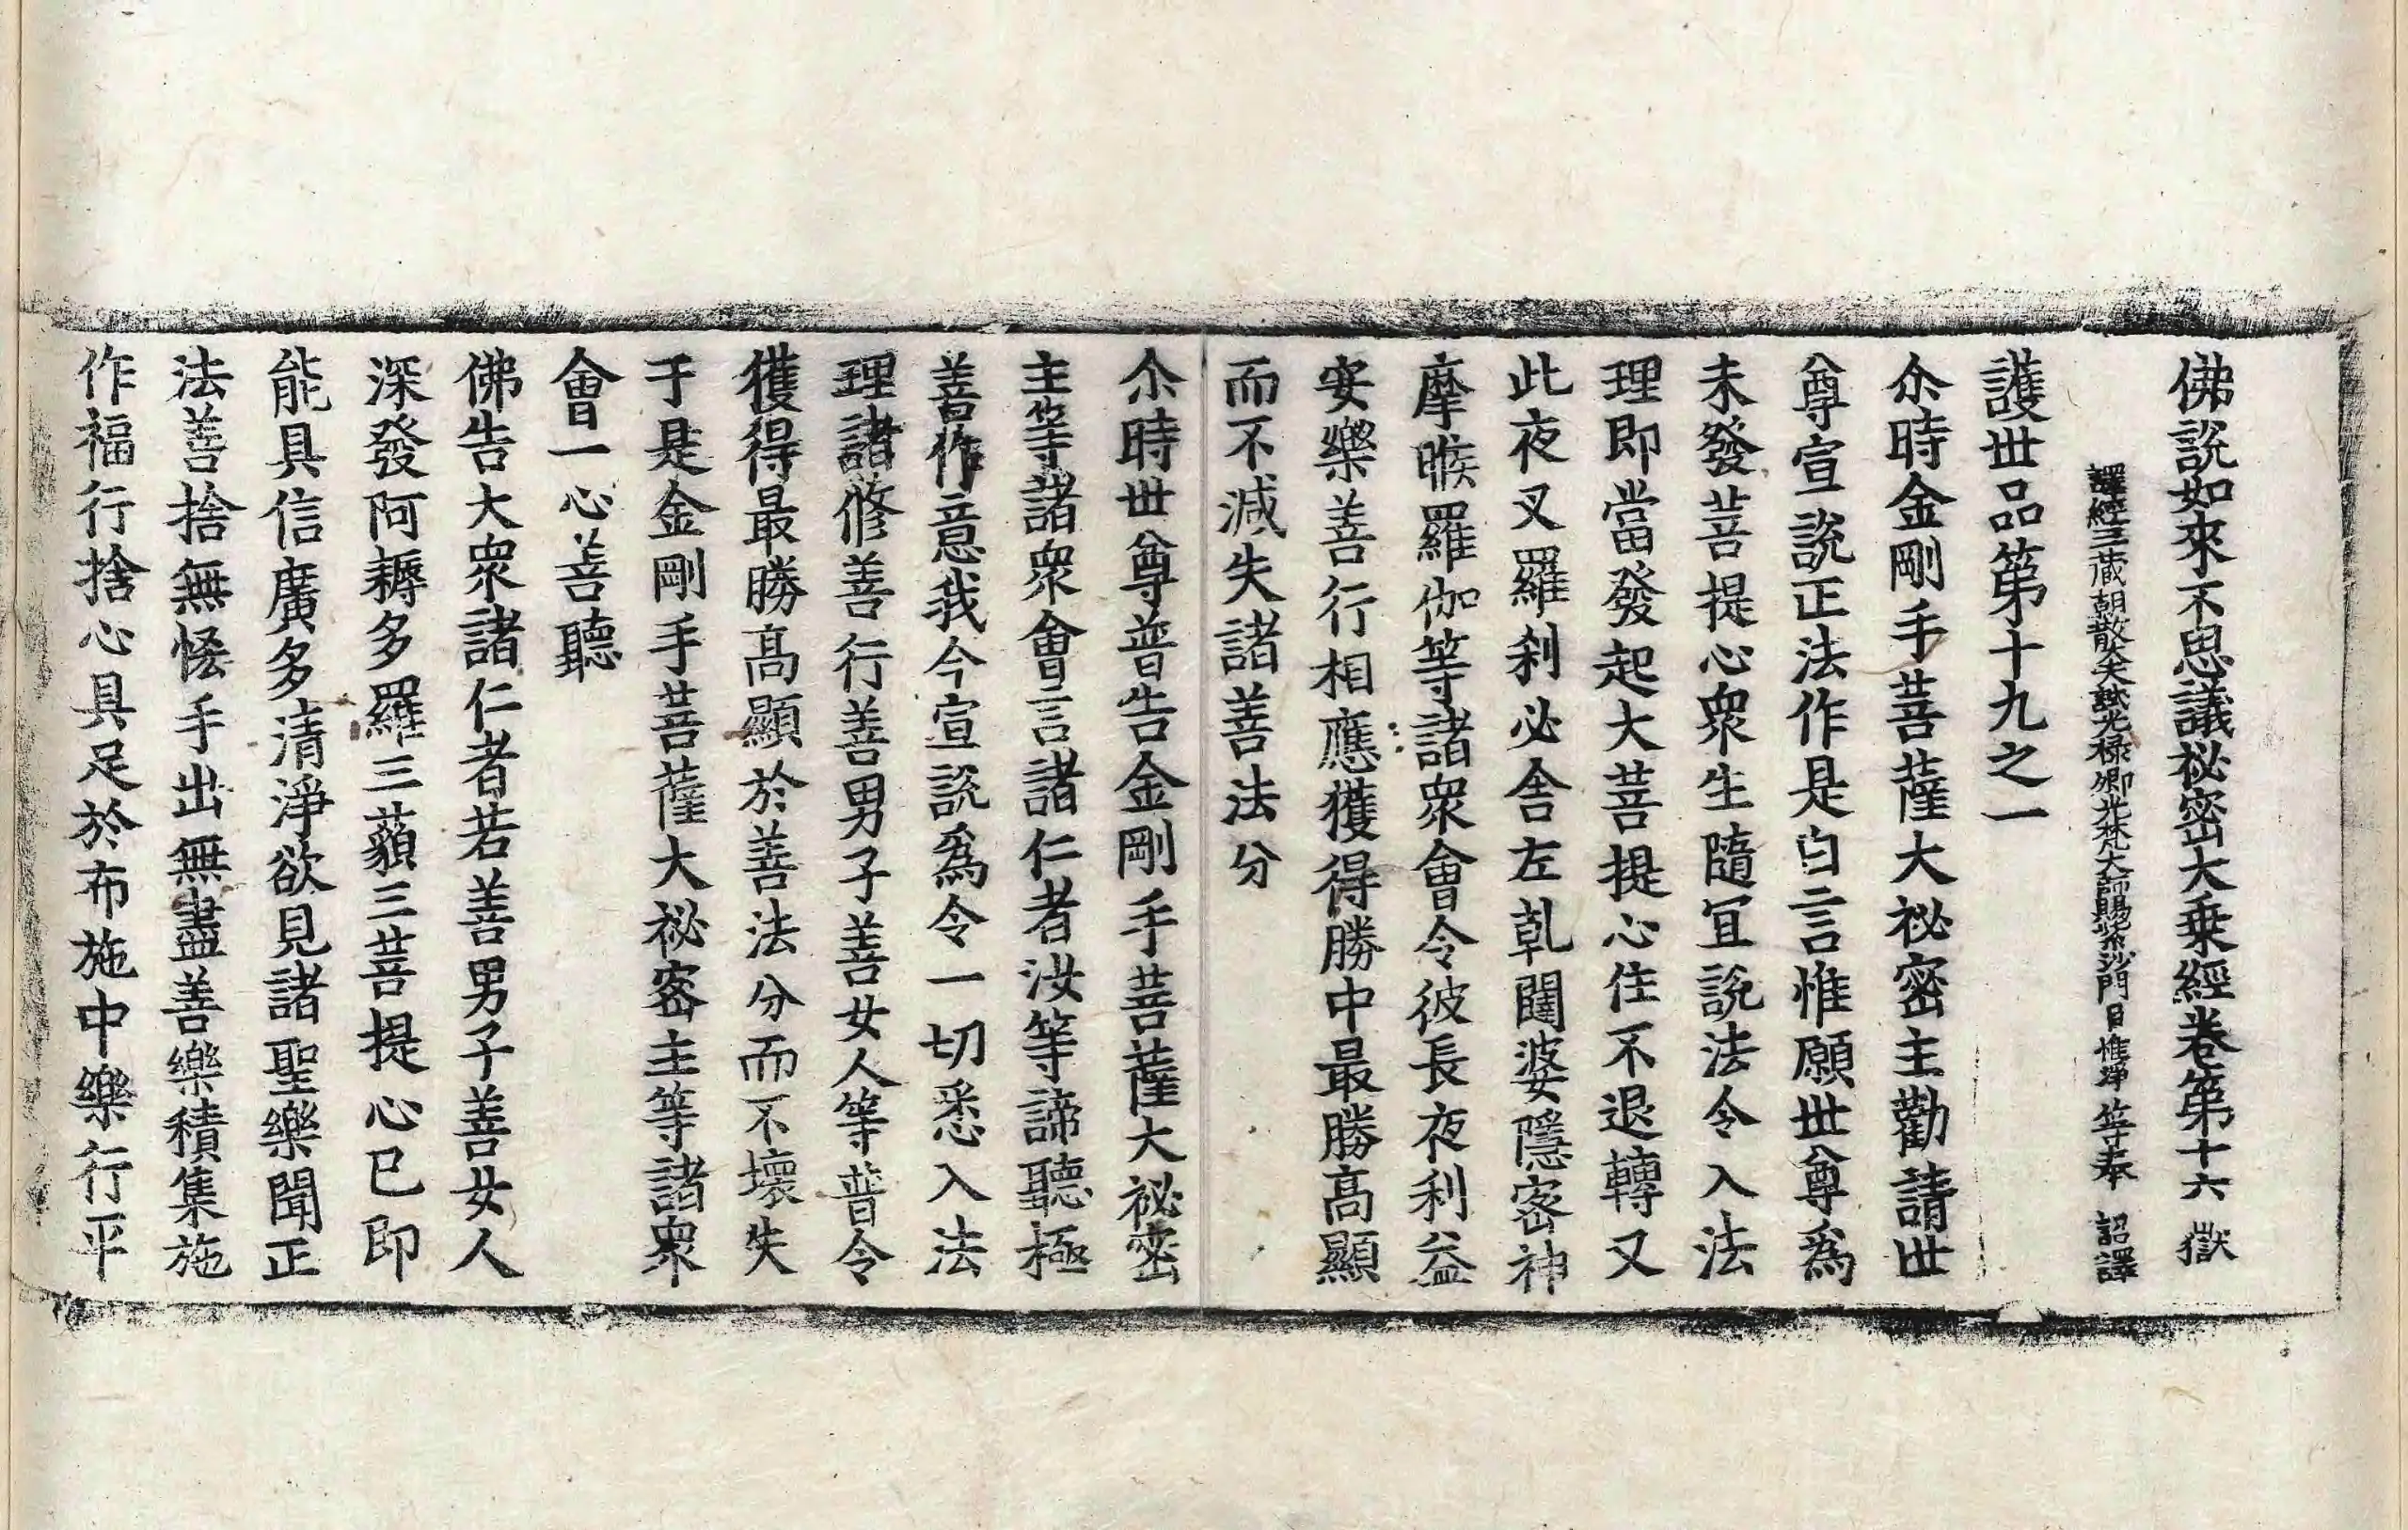 佛說如來不思議祕密大乗經卷第十六 獄
譯經三藏朝散大夫試光祿卿光梵大師賜紫沙門臣惟淨等奉 詔譯
護世品第十九之一
尒時金剛手菩薩大祕密主勸請世
尊宣說正法作是白言惟願世尊爲
未發菩提心衆生隨冝說法令入法
理即當發起大菩提心住不退轉又
此夜叉羅刹必舍左乹闥婆隱密神
摩睺羅伽等諸衆會令彼長夜利益
安樂善行相應獲得勝中最勝髙顯
而不減失諸善法分
尒時世尊普告金剛手菩薩大祕密
主等諸衆會言諸仁者汝等諦聽極
善作意我今宣說爲令一切悉入法
理諸修善行善男子善女人等普令
獲得最勝髙顯於善法分而不壞失
于是金剛手菩薩大祕密主等諸衆
會一心善聽
佛告大衆諸仁者若善男子善女人
深發阿耨多羅三藐三菩提心已即
能具信廣多清淨欲見諸聖樂聞正
法善捨無悋手出無盡善樂積集施
作福行捨心具足於布施中樂行平